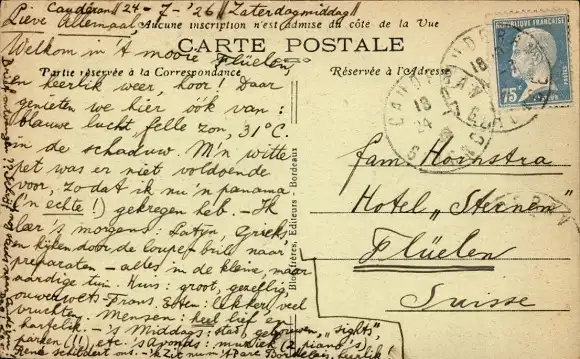 Caudéran 24-7-'26 Zaterdagmiddag
Lieve Allemaal,
Aucune inscription n'est admise du côté de la Vue
Welkom in 't mooie Flüelen,
CARTE POSTALE
Partie réservée à la Correspondance
Réservée à l'Adresse
en heerlijk weer, hoor! Daar
genieten we hier óók van:
blauwe lucht, felle zon, 31°C.
in de schaduw. M'n witte
pet was er niet voldoende
voor, zodat ik nu 'n panama
('n echte!) gekregen heb. – Ik
's morgens: Latijn, Grieks
en kijken door de loupe-bril naar
preparaten – alles in de kleine, maar
aardige tuin. Huis: groot, gezellig,
ouderwets-Frans. Eten: lekker, veel
vruchten. Mensen: heel lief en
hartelijk. – 's Middags: stad, gebouwen, "sights"
parken (!!) etc. 's Avonds: muziek (2 piano's)
René schildert ons. – 'k Zit nu in 't Parc Bordelais, heerlijk!
Bloc frères, Editeurs - Bordeaux
fam. Hoornstra
Hotel "Sternen"
Flüelen
Suisse
REPUBLIQUE FRANÇAISE
75c
POSTES
CAUDERAN
18
24
GIRONDE